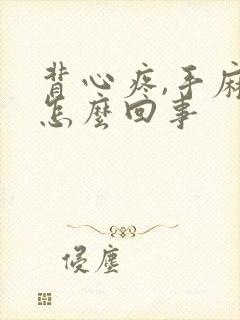 背心疼,手麻
怎麼回事
侵塵